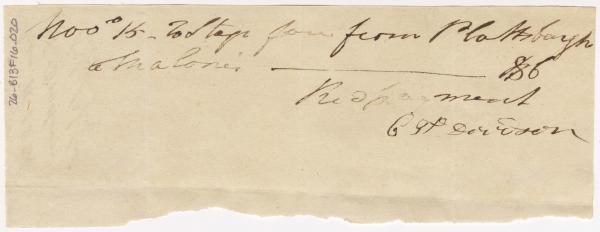 Nov 15 - To Stage fare from Plattsburgh
a Malone $6
Recd payment
C H Davidson
26-B13F16-020